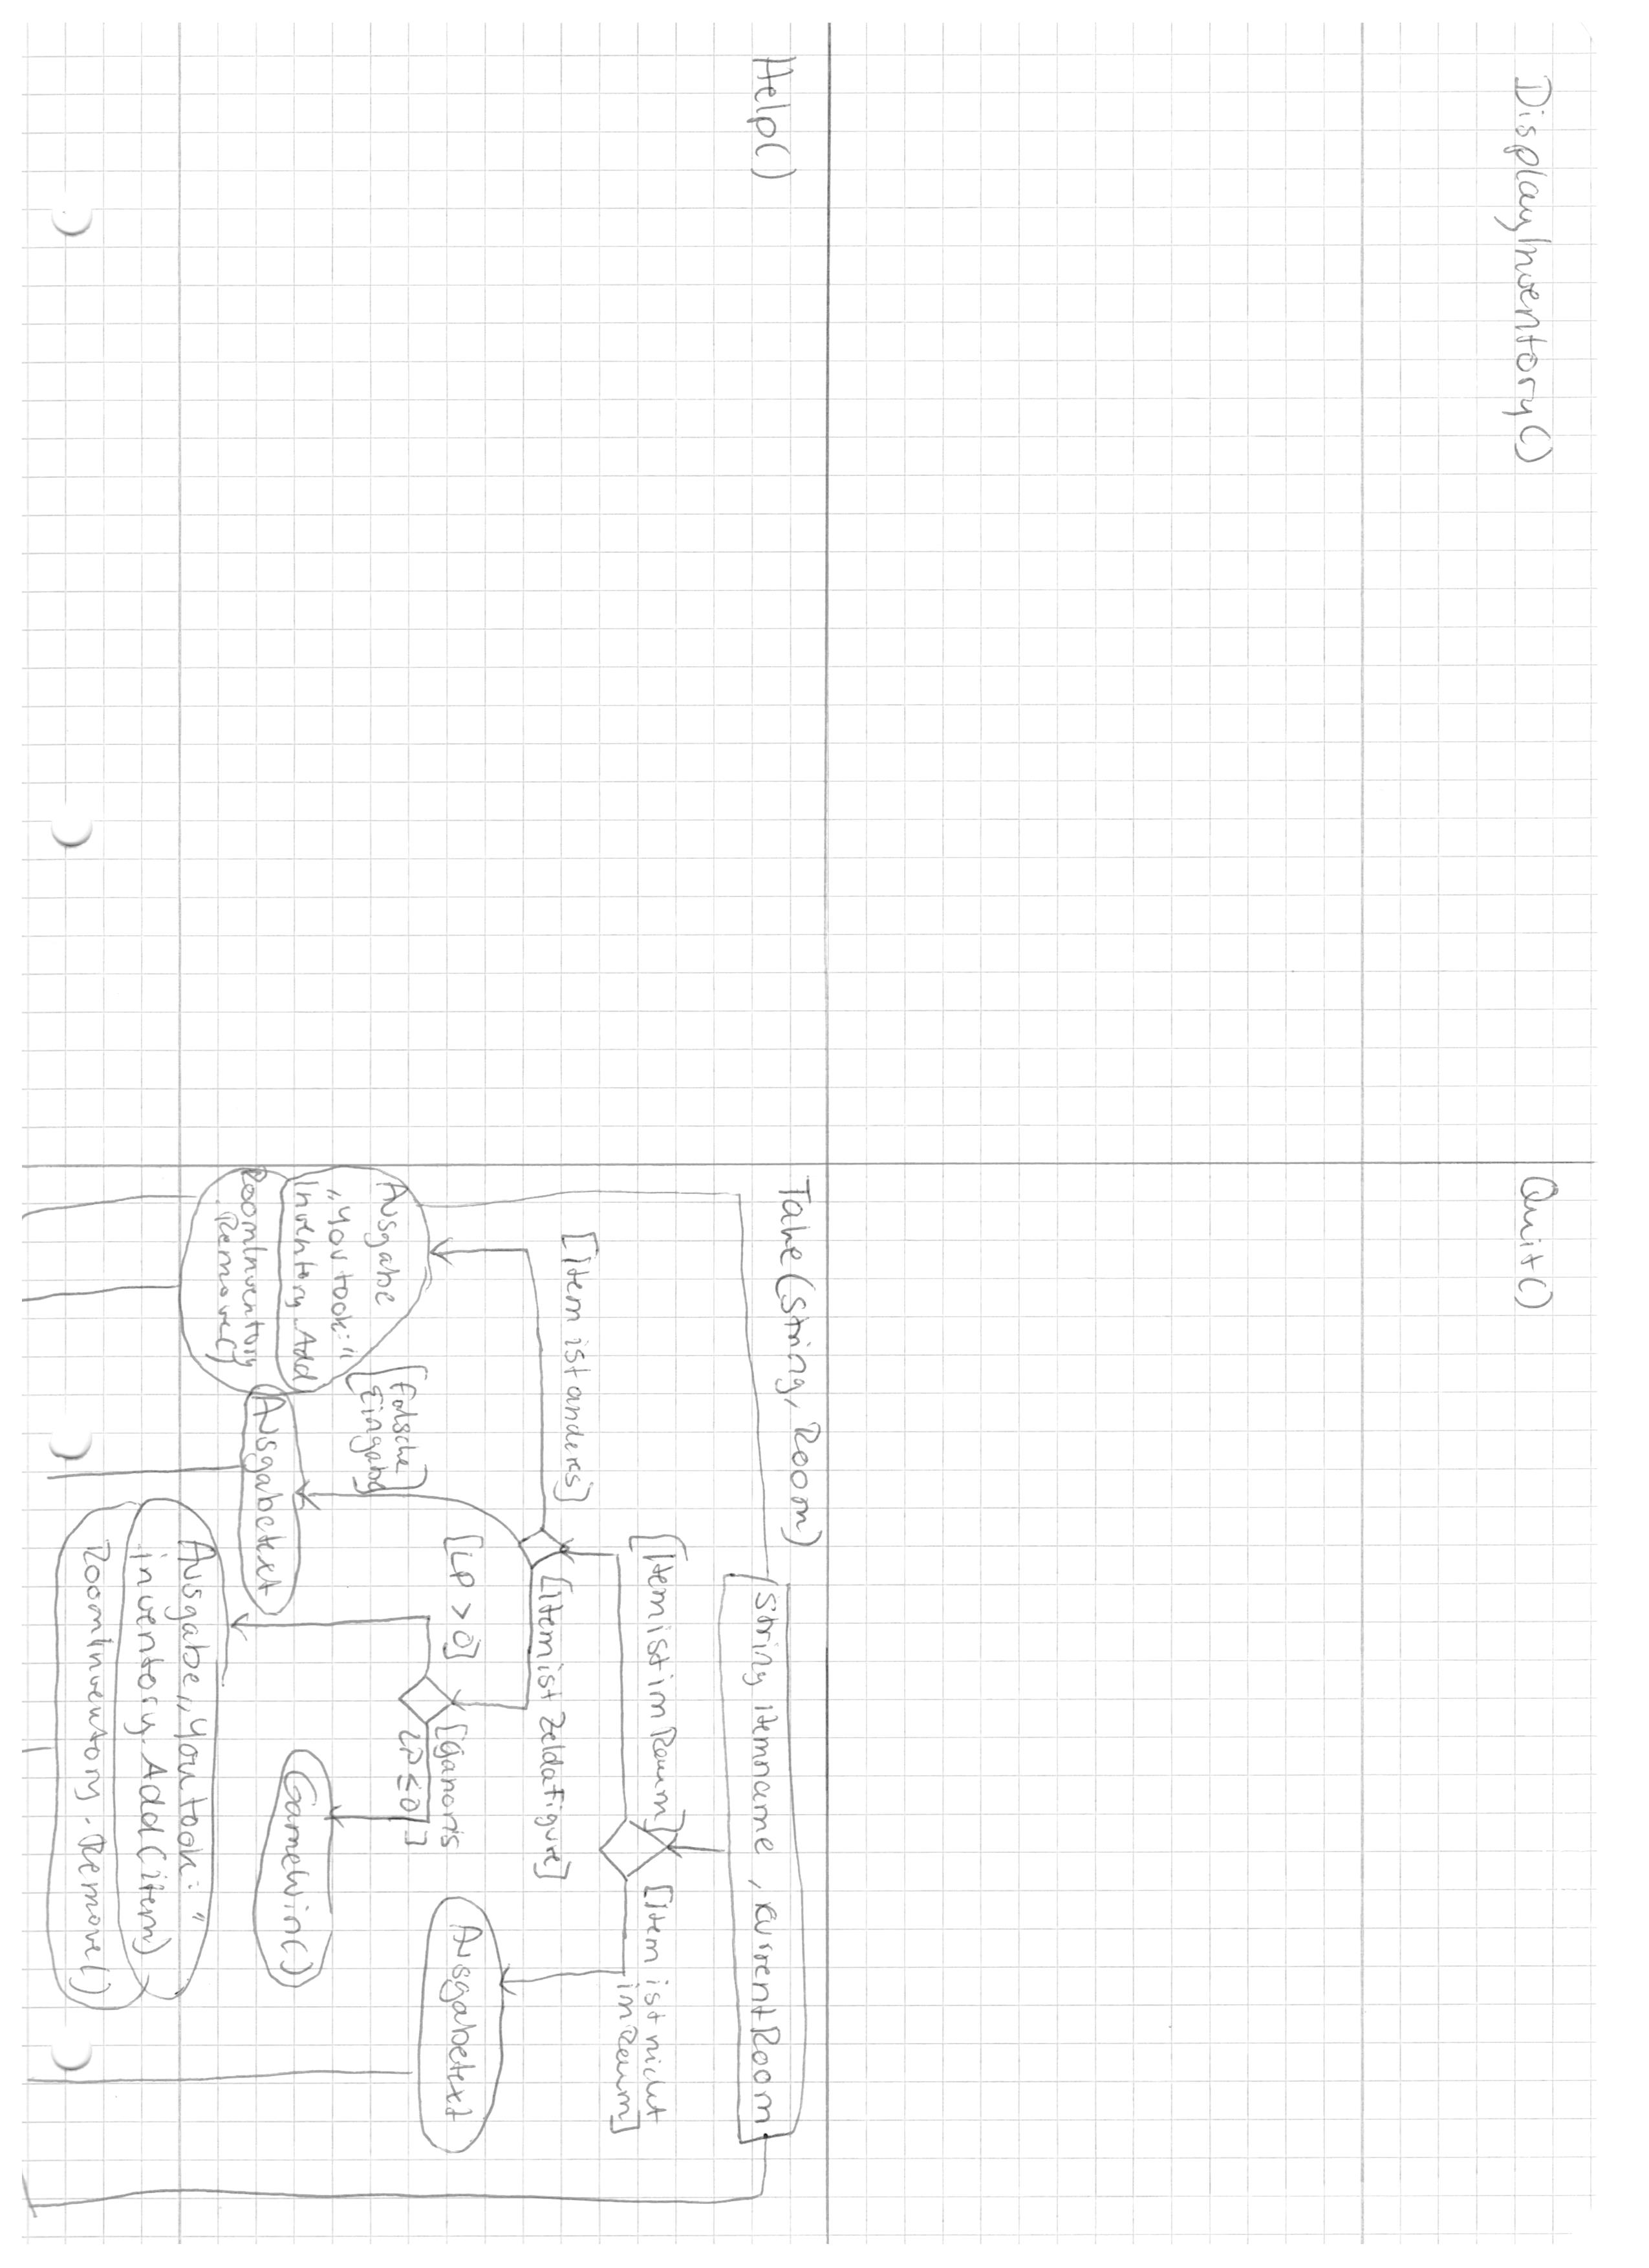 DisplayInventory()
Quit()
Help()
Take(String, Room)
String Itemname, currentRoom
[Item ist im Raum]
[Item ist nicht
im Raum]
[Item ist anderes]
[Item ist ZeldaFigure]
[LP > 0]
[Ganon's
LP ≤ 0]
Ausgabetext
Ausgabe
„You took:“
Inventory.Add
RoomInventory
.Remove()
[Falsche
Eingabe]
Ausgabetext
GameWin()
Ausgabe „You took:“
inventory.Add(item)
RoomInventory.Remove()